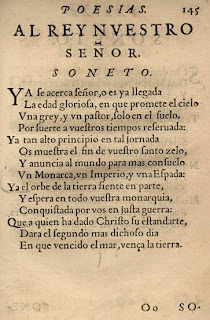 POESIAS. 145
AL REY NVESTRO
SEÑOR.
SONETO.
YA se acerca señor, o es ya llegada
La edad gloriosa, en que promete el cielo
Vna grey, y vn pastor, solo en el suelo,
Por suerte a vuestros tiempos reseruada:
Ya tan alto principio en tal jornada
Os muestra el fin de vuestro santo zelo,
Y anuncia al mundo para mas consuelo
Vn Monarca, vn Imperio, y vna Espada:
Ya el orbe de la tierra siente en parte,
Y espera en todo vuestra monarquia,
Conquistada por vos en justa guerra:
Que a quien ha dado Christo su estandarte,
Dara el segundo mas dichoso dia
En que vencido el mar, vença la tierra.
Oo SO-